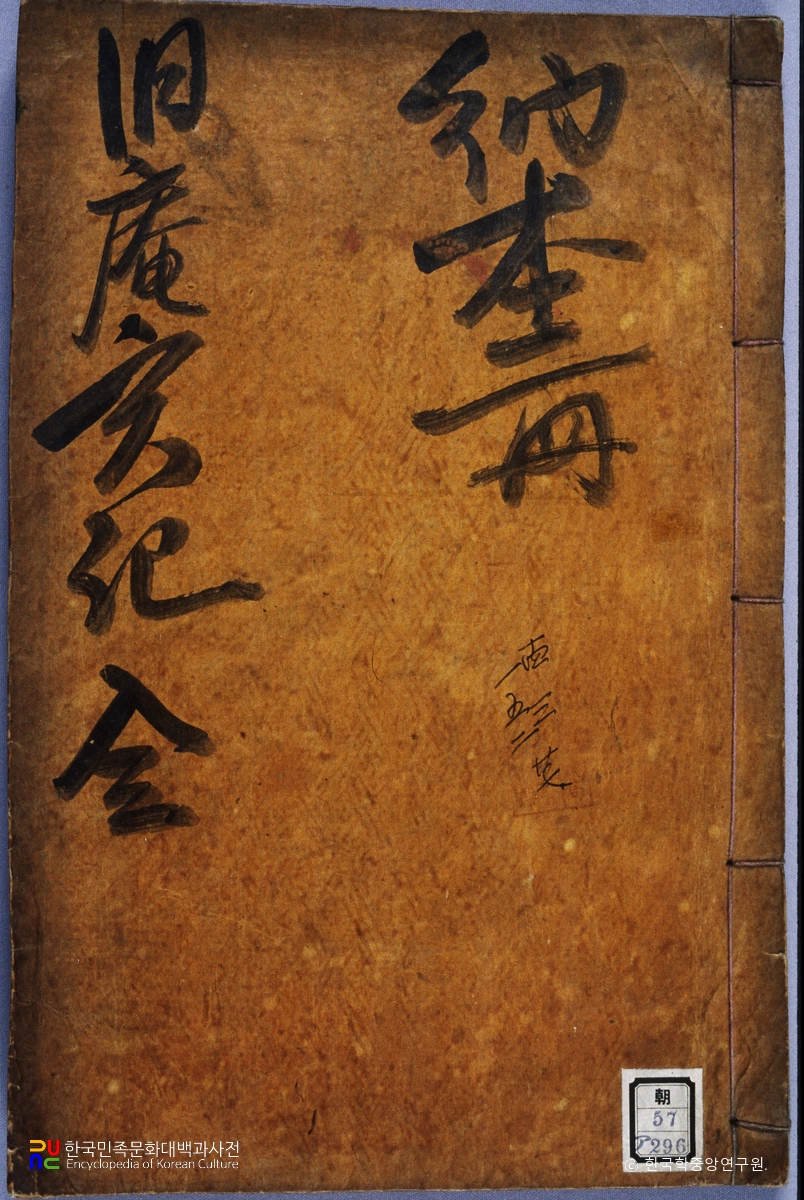 納本一冊
旧庵実記 全
朝
57
ア296
한국민족문화대백과사전
Encyclopedia of Korean Culture
© 한국학중앙연구원.